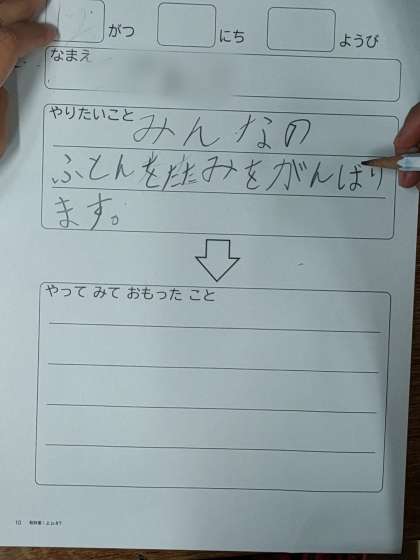 がつ にち ようび
なまえ
やりたいこと みんなの
ふとんをたたみをがんばり
ます。
やって みて おもった こと
10